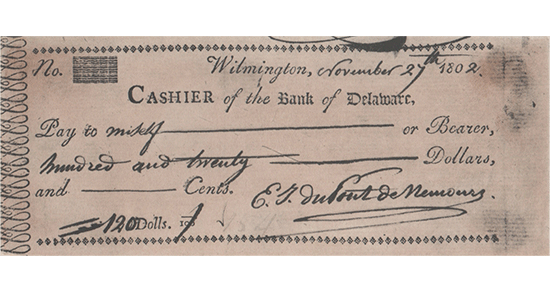 No.
Wilmington, November 27th 1802.
CASHIER of the Bank of Delaware,
Pay to myself or Bearer,
hundred and twenty Dollars,
and Cents. E. I. duPont de Nemours.
120 Dolls.